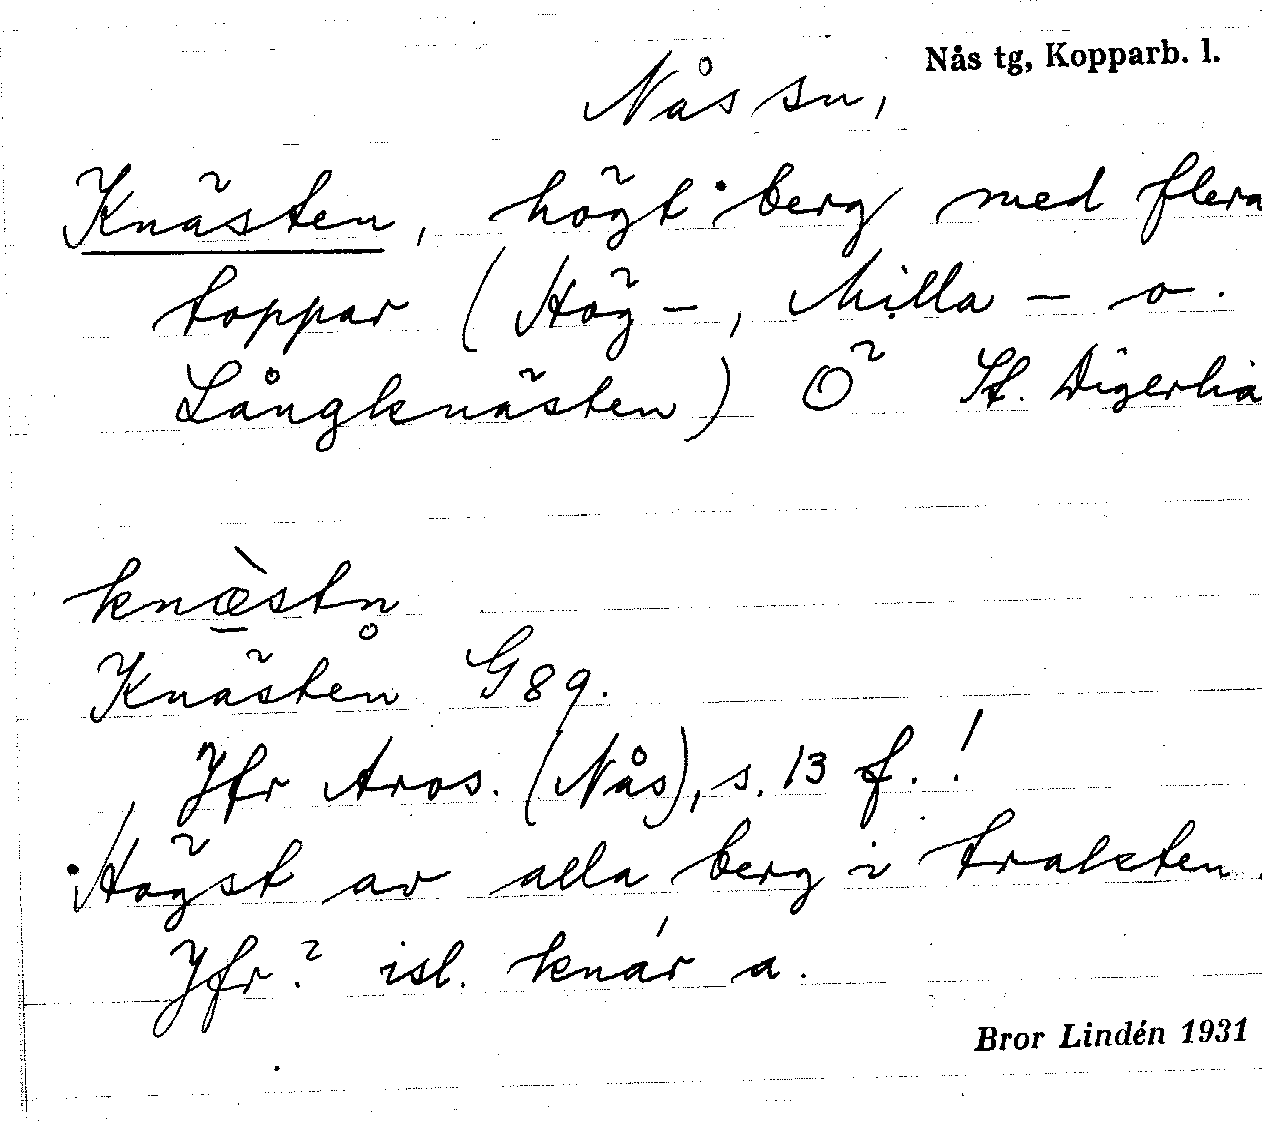 Nås tg, Kopparb. l.
Nås sn,
Knästen, högt berg med flera
toppar (Hög-, Milla- o.
Långknästen) Ö St. Digerlia
knæ̀stn̥
Knästen G 89.
Jfr Aros. (Nås), s. 13 f.!
Högst av alla berg i trakten.
Jfr? isl. knár a.
Bror Lindén 1931